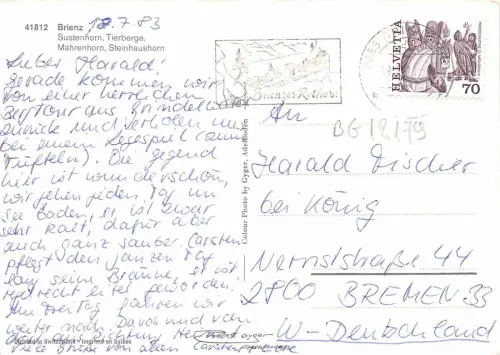 41812 Brienz
Sustenhorn, Tierberge,
Mährenhorn, Steinhaushorn
18.7.83
Lieber Harald!
Gerade kommen wir
von einer herrlichen
Bergtour aus Grindelwald
zurück und erholen uns
bei einem Kegelspiel (zum
Tüfteln). Die Gegend
hier ist wunderschön,
wir gehen jeden Tag im
See baden, er ist zwar
sehr kalt, dafür aber
auch ganz sauber. Carsten
pflegt den ganzen Tag
lang seine Bräune, er ist
regelrecht eitel geworden.
Am Freitag fahren wir
weiter nach Davos und von
Viele Grüße von allen Carsten
Printed in Switzerland – Imprimé en Suisse
Colour Photo by Gyger, Adelboden
Brienzer Rothorn
HELVETIA
70
BG 18179
An
Harald Discher
bei König
Nernststraße 44
2800 BREMEN 33
W-Deutschland